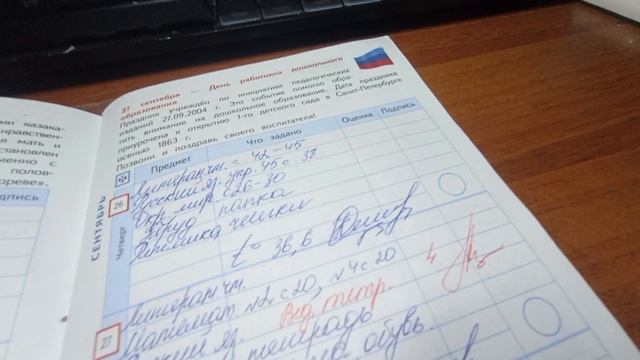 27 сентября — День работника дошкольного
образования
Праздник учреждён по инициативе педагогических
изданий 27.09.2004 г. Это событие помогло обра-
тить внимание на дошкольное образование. Дата праздника
приурочена к открытию 1-го детского сада в Санкт-Петербурге
осенью 1863 г.
Позвони и поздравь своего воспитателя!
ми казака-
нравствен-
я мать и
становлен
менно с
полов-
ореве».
дпись
Предмет Что задано Оценка Подпись
СЕНТЯБРЬ
Четверг
26
Литерат. чт. с. 42-45
Русский яз. упр. 45 с. 38
Окр. мир. с 26-30
Труд папка
чешки
t° 36,6
27
Литерат. чт.
Математ. №2 с 20, №4 с 20 4
яз. Вид. тетр.
тетрадь
обувь.